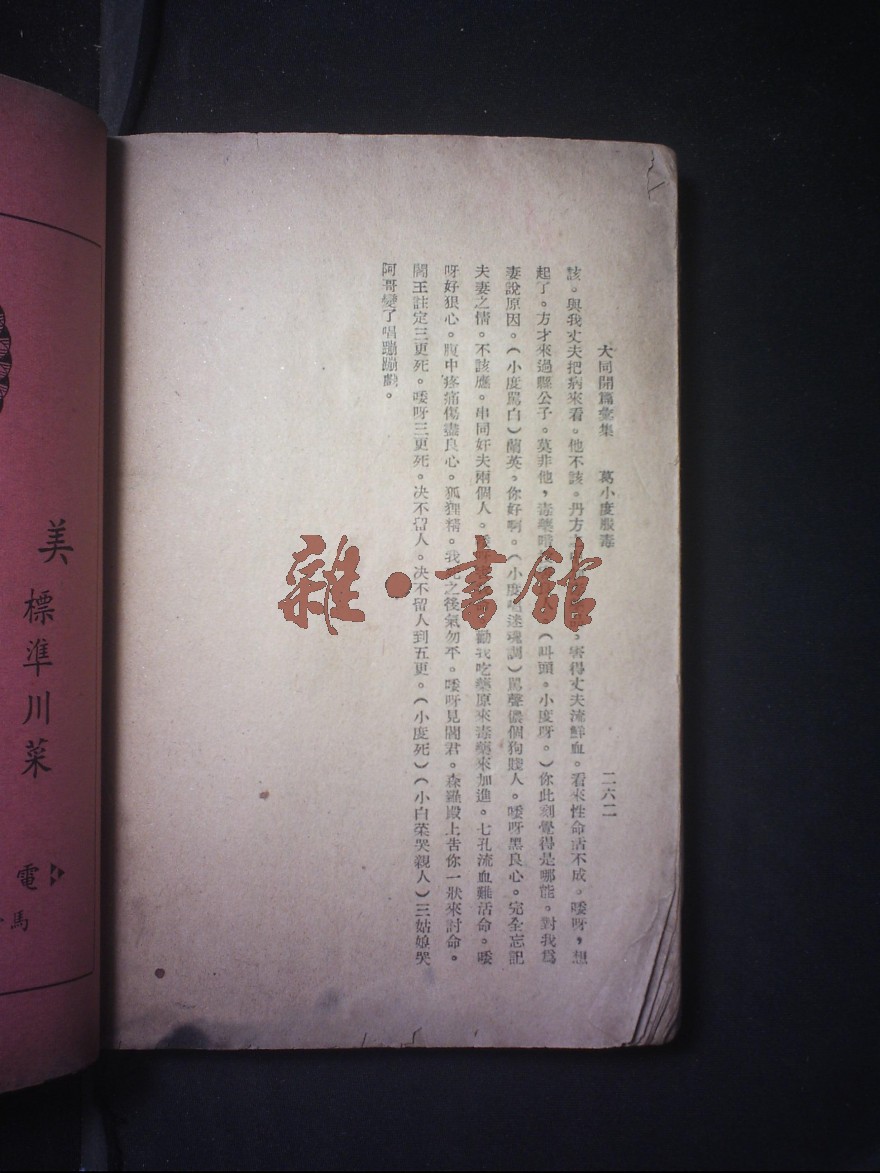 大同開篇彙集　葛小度服毒　二六二
該。與我丈夫把病來看。他不該。丹方 害得丈夫流鮮血。看來性命活不成。唩呀，想
起了。方才來過縣公子。莫非他，毒藥 （叫頭。小度呀。）你此刻覺得是哪能。對我爲
妻說原因。（小度罵白）蘭英。你好啊。（小度唱迷魂調）罵聲儂個狗賤人。唩呀黑良心。完全忘記
夫妻之情。不該應。串同奸夫兩個人。 勸我吃藥原來毒藥來加進。七孔流血難活命。唩
呀好狠心。腹中疼痛傷盡良心。狐狸精。我死之後氣勿平。唩呀見閻君。森羅殿上告你一狀來討命。
閻王註定三更死。唩呀三更死。决不留人。决不留人到五更。（小度死）（小白菜哭親人）三姑娘哭
阿哥變了唱蹦蹦戲。
雜·書館
美
標準川菜
電
馬